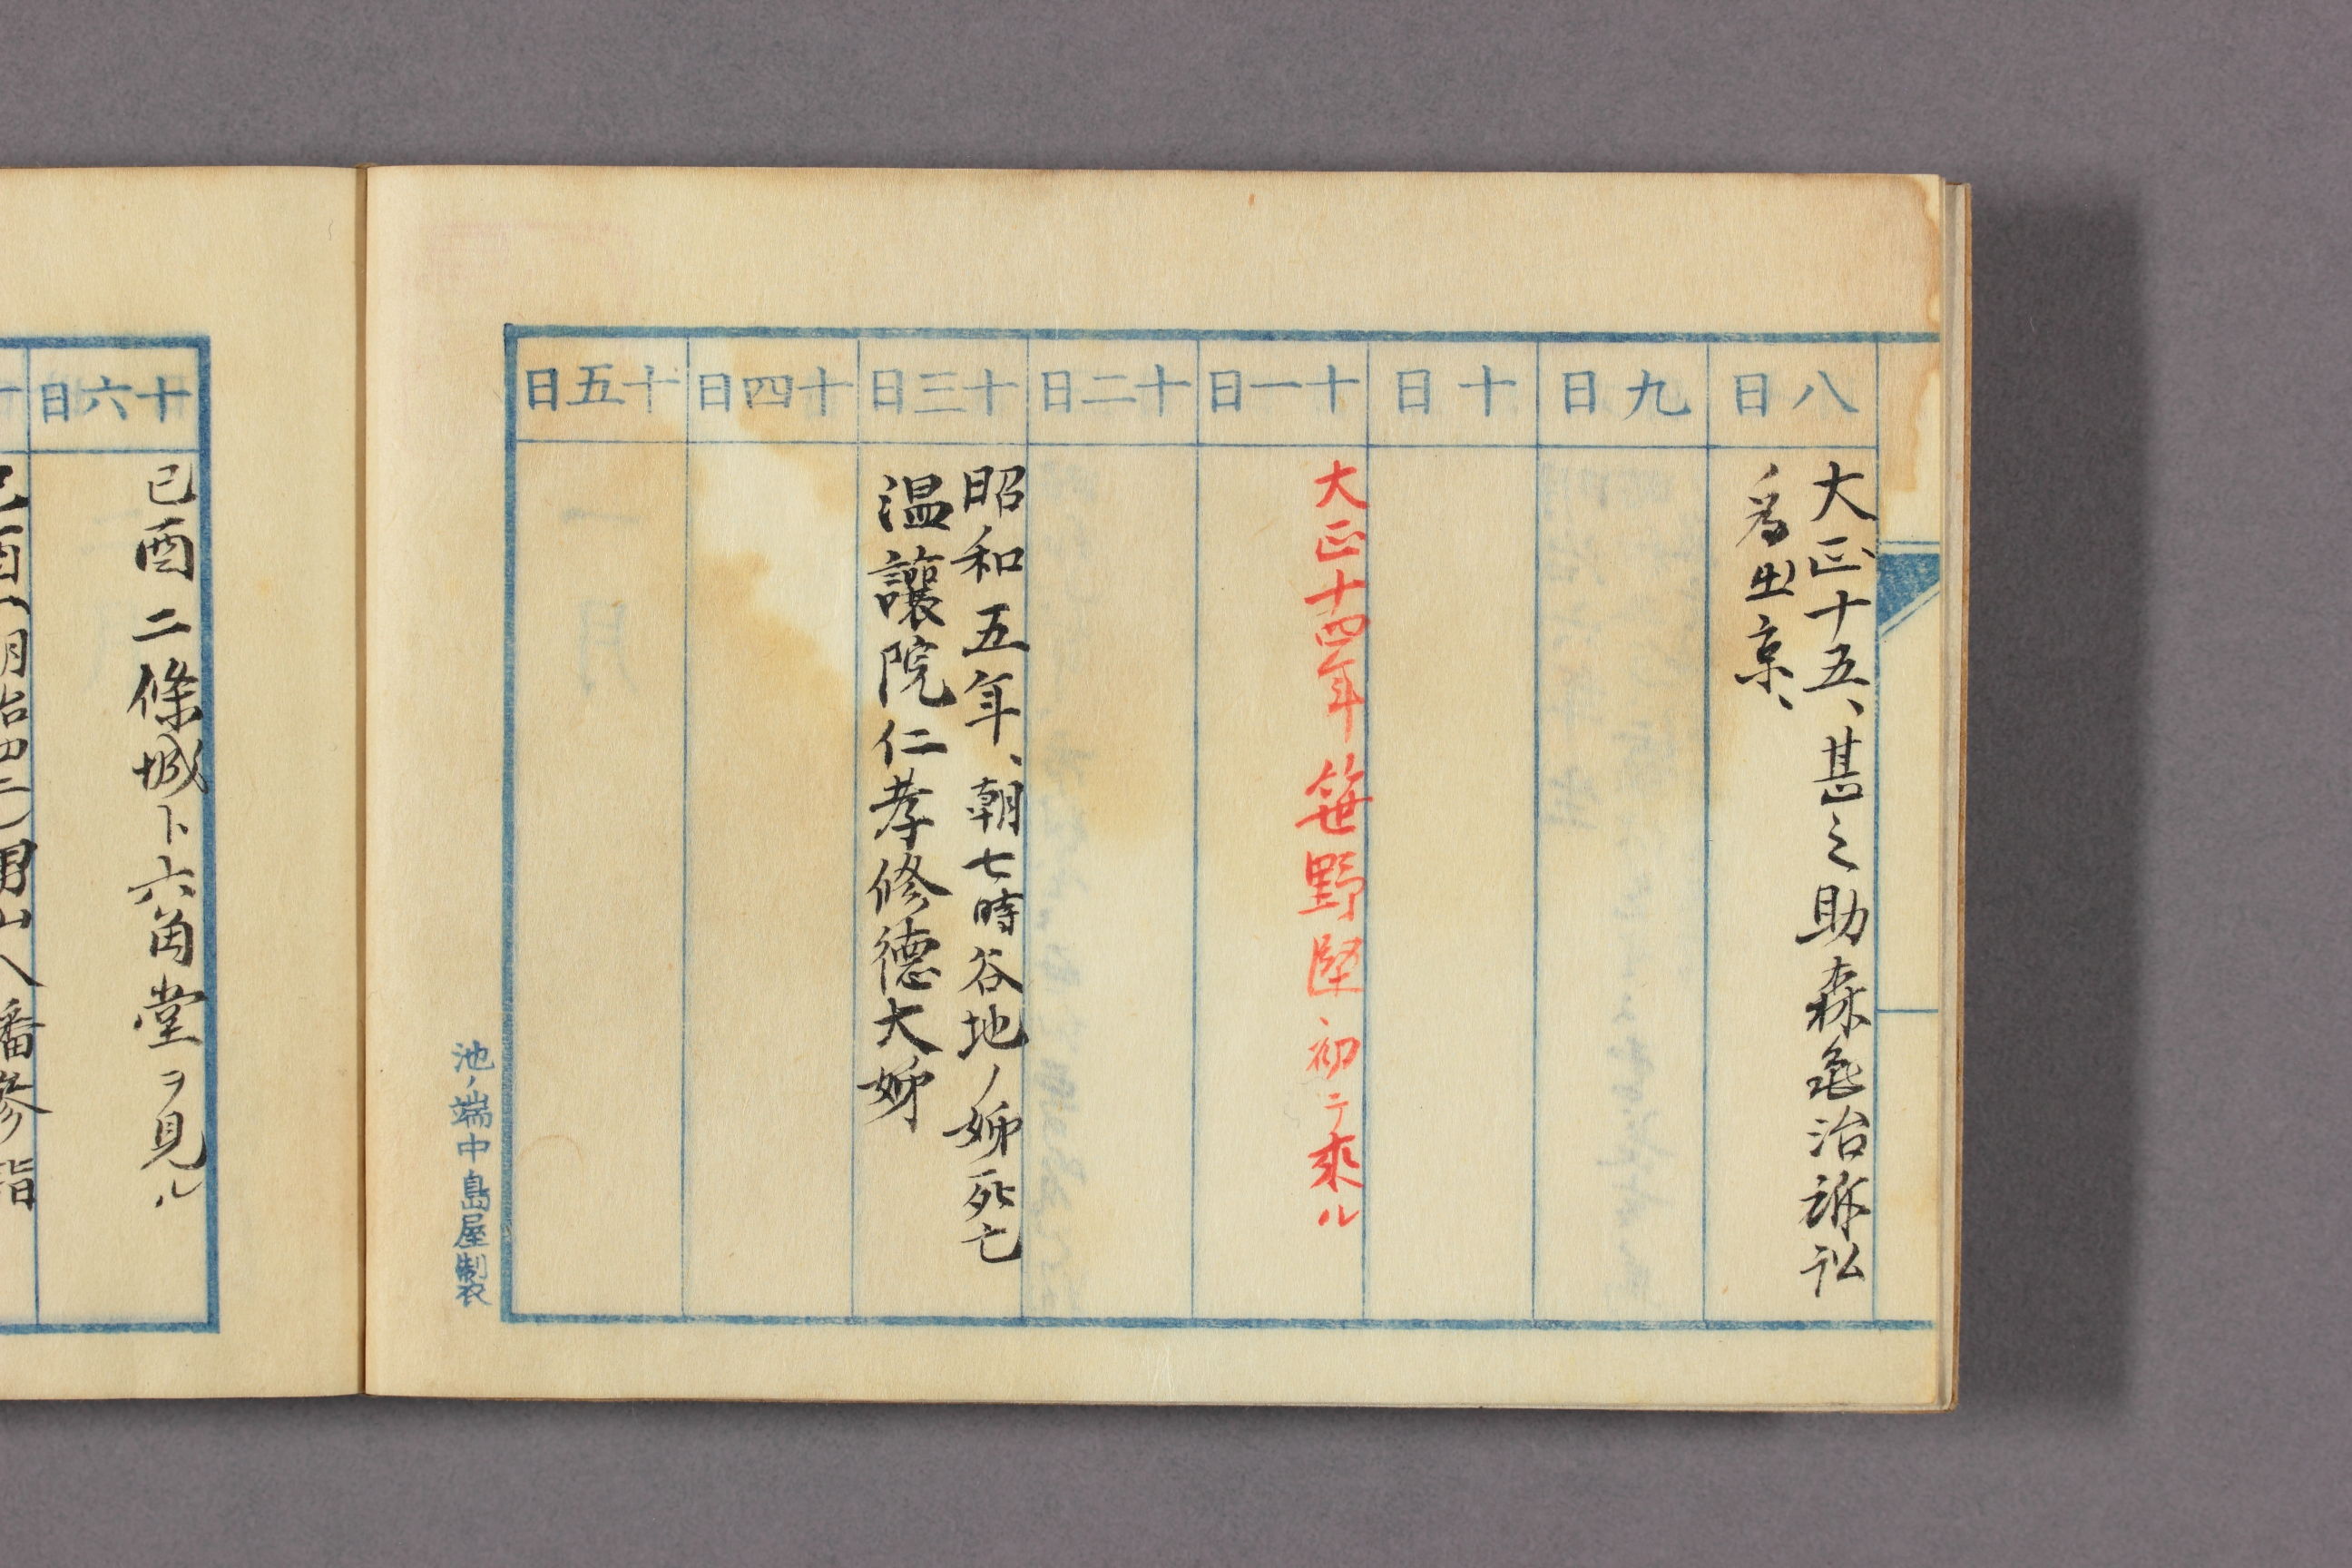 八日
大正十五、甚之助森亀治訴訟
ノ為出京、
九日
十日
十一日
大正十四年笹野堅初テ来ル
十二日
十三日
昭和五年、朝七時谷地ノ姉死亡
温讓院仁孝修德大姉
十四日
十五日
池ノ端中島屋製
十六日
己酉二條城ト六角堂ヲ見ル
己酉(明治四二)男山八幡参詣